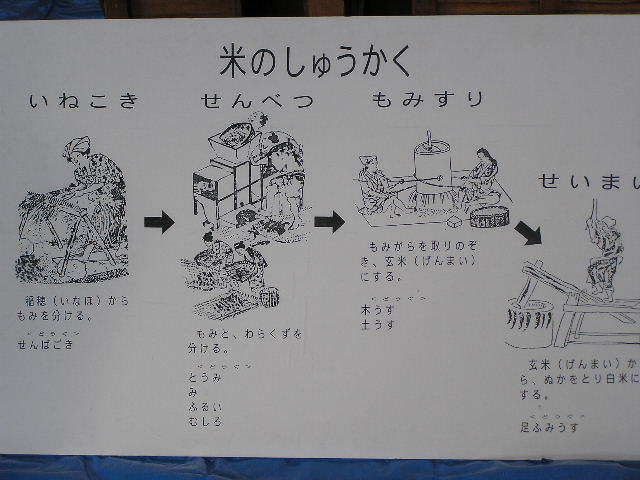 米のしゅうかく
いねこき
せんべつ
もみすり
せいまい
稲穂（いなほ）から
もみを分ける。
<どうぐ>
せんばごき
もみと、わらくずを
分ける。
<どうぐ>
とうみ
み
ふるい
むしろ
もみがらを取りのぞ
き、玄米（げんまい）
にする。
<どうぐ>
木うす
土うす
玄米（げんまい）か
ら、ぬかをとり白米に
する。
<どうぐ>
足ふみうす